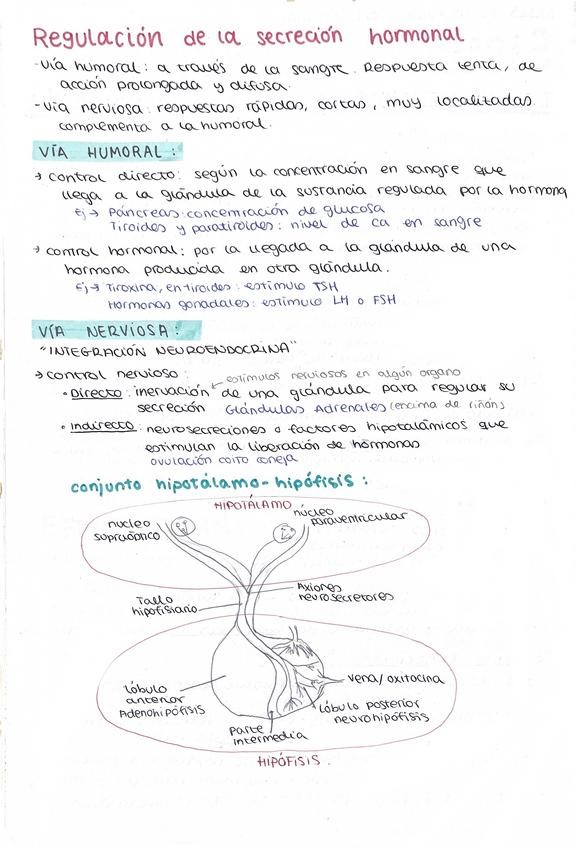 Regulación de la secreción hormonal
-Vía humoral: a través de la sangre. Respuesta lenta, de
acción prolongada y difusa.
-Vía nerviosa: respuestas rápidas, cortas, muy localizadas.
complementa a la humoral.
VÍA HUMORAL:
→ control directo: según la concentración en sangre que
llega a la glándula de la sustancia regulada por la hormona
Ej → Páncreas: concentración de glucosa
Tiroides y paratiroides: nivel de ca en sangre
→ control hormonal: por la llegada a la glándula de una
hormona producida en otra glándula.
Ej → Tiroxina, en tiroides: estímulo TSH
Hormonas gonadales: estímulo LH o FSH
VÍA NERVIOSA:
"INTEGRACIÓN NEUROENDOCRINA"
→ control nervioso:
estímulos nerviosos en algún organo
• Directo: inervación de una glándula para regular su
secreción Glándulas Adrenales (encima de riñón)
• Indirecto: neurosecreciones o factores hipotalámicos que
estimulan la liberación de hormonas
ovulación coito coneja
conjunto hipotálamo-hipófisis:
HIPOTÁLAMO
nucleo
supraóptico
núcleo
paraventricular
Tallo
hipofisiario
Axiones
neurosecretores
vena/oxitocina
lóbulo
anterior
Adenohipófisis
lóbulo posterior
neurohipófisis
parte
intermedia
HIPÓFISIS.